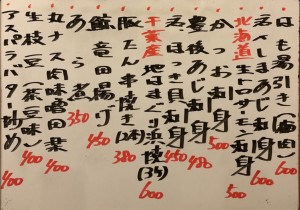 はも湯引き(梅肉) 600
600
北海道 生サーモン刺身 500
かつお刺身 500
豊後あじ刺身 480
ほっき貝刺身 450
千葉産 地はまぐり浜焼(3ヶ) 600
豚たん串焼き(2本) 380
鯨竜田揚げ 450
あら煮 350
丸ナス肉味噌田楽 400
生枝豆(茶豆味) 400
アスパラバター炒め 400